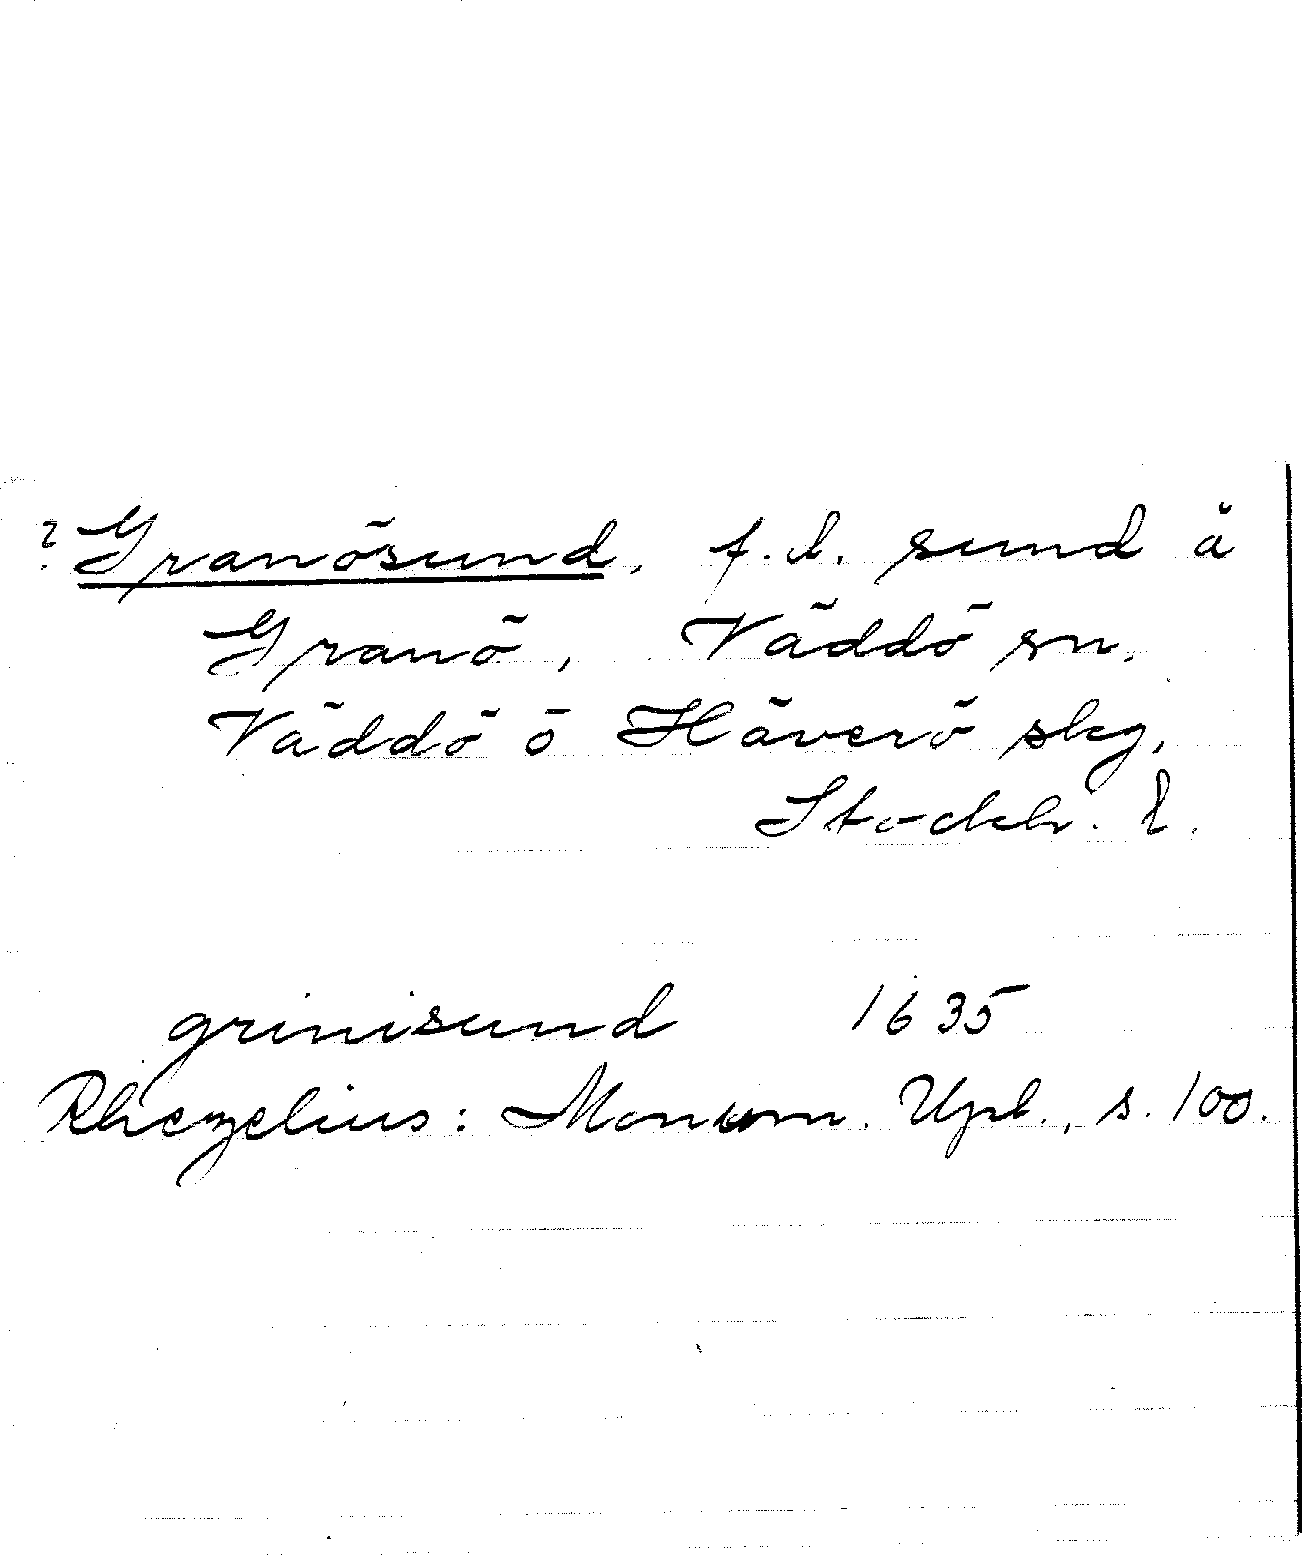 ? Granösund, f.d. sund å
Granö, Väddö sn,
Väddö o Häverö skg,
Stockh. l.
grinisund 1635
Rhezelius: Monum. Upl., s. 100.